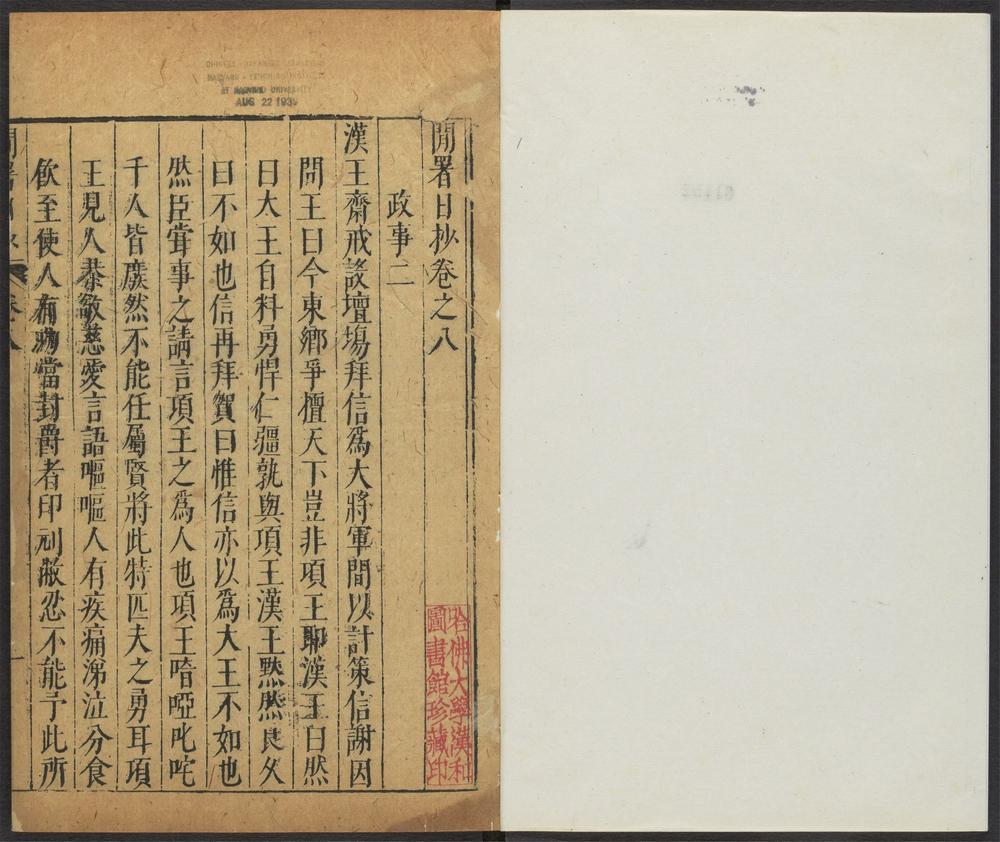 閒署日抄卷之八
政事二
漢王齋戒設壇場拜信爲大將軍間以計策信謝因
問王曰今東鄉爭權天下豈非項王耶漢王曰然
曰大王自料勇悍仁彊孰與項王漢王黙然良久
曰不如也信再拜賀曰惟信亦以爲大王不如也
然臣嘗事之請言項王之爲人也項王喑啞叱咤
千人皆廢然不能任屬賢將此特匹夫之勇耳項
王見人恭敬慈愛言語嘔嘔人有疾痛涕泣分食
飲至使人有功當封爵者印刓敝忍不能予此所
卷八
一
哈佛大學漢和
圖書館珍藏印
CHINESE-JAPANESE
HARVARD-YENCHING INSTITUTE
AT HARVARD UNIVERSITY
AUG 22 193